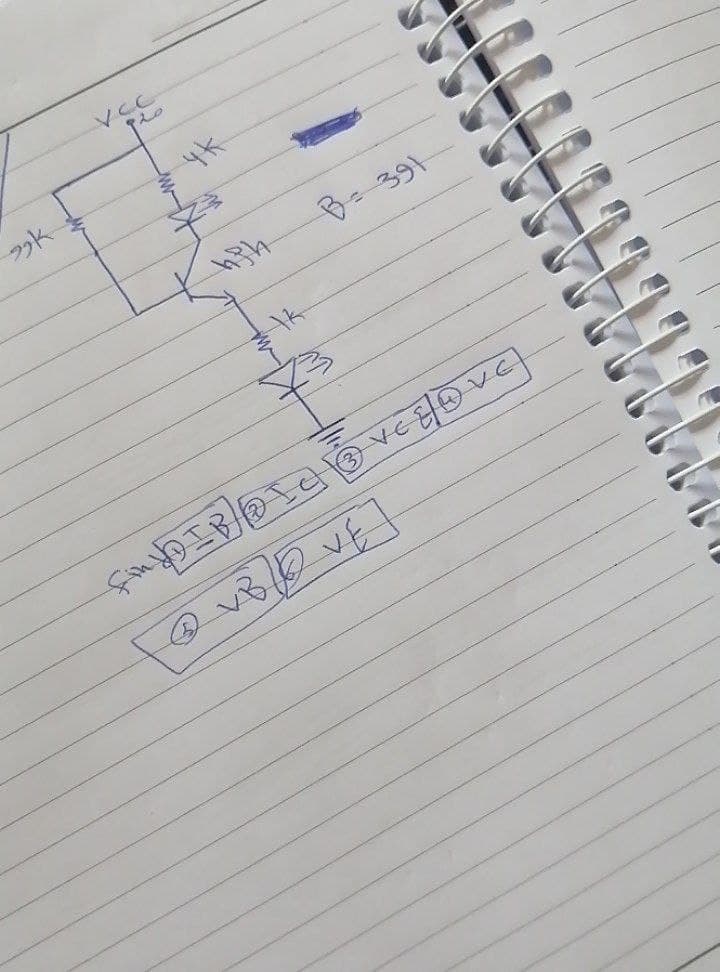 VCC
20
4K
B = 391
99K
npn
1K
find ① IB ② IC ③ VCE ④ VC
⑤ VB ⑥ VE